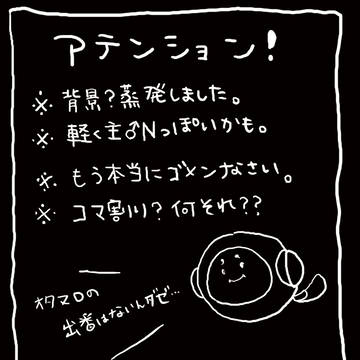 アテンション!
※背景?蒸発しました。
※軽く主♂Nっぽいかも。
※もう本当にゴメンなさい。
※コマ割り?何それ??
オタマロの
出番はないんダゼ…